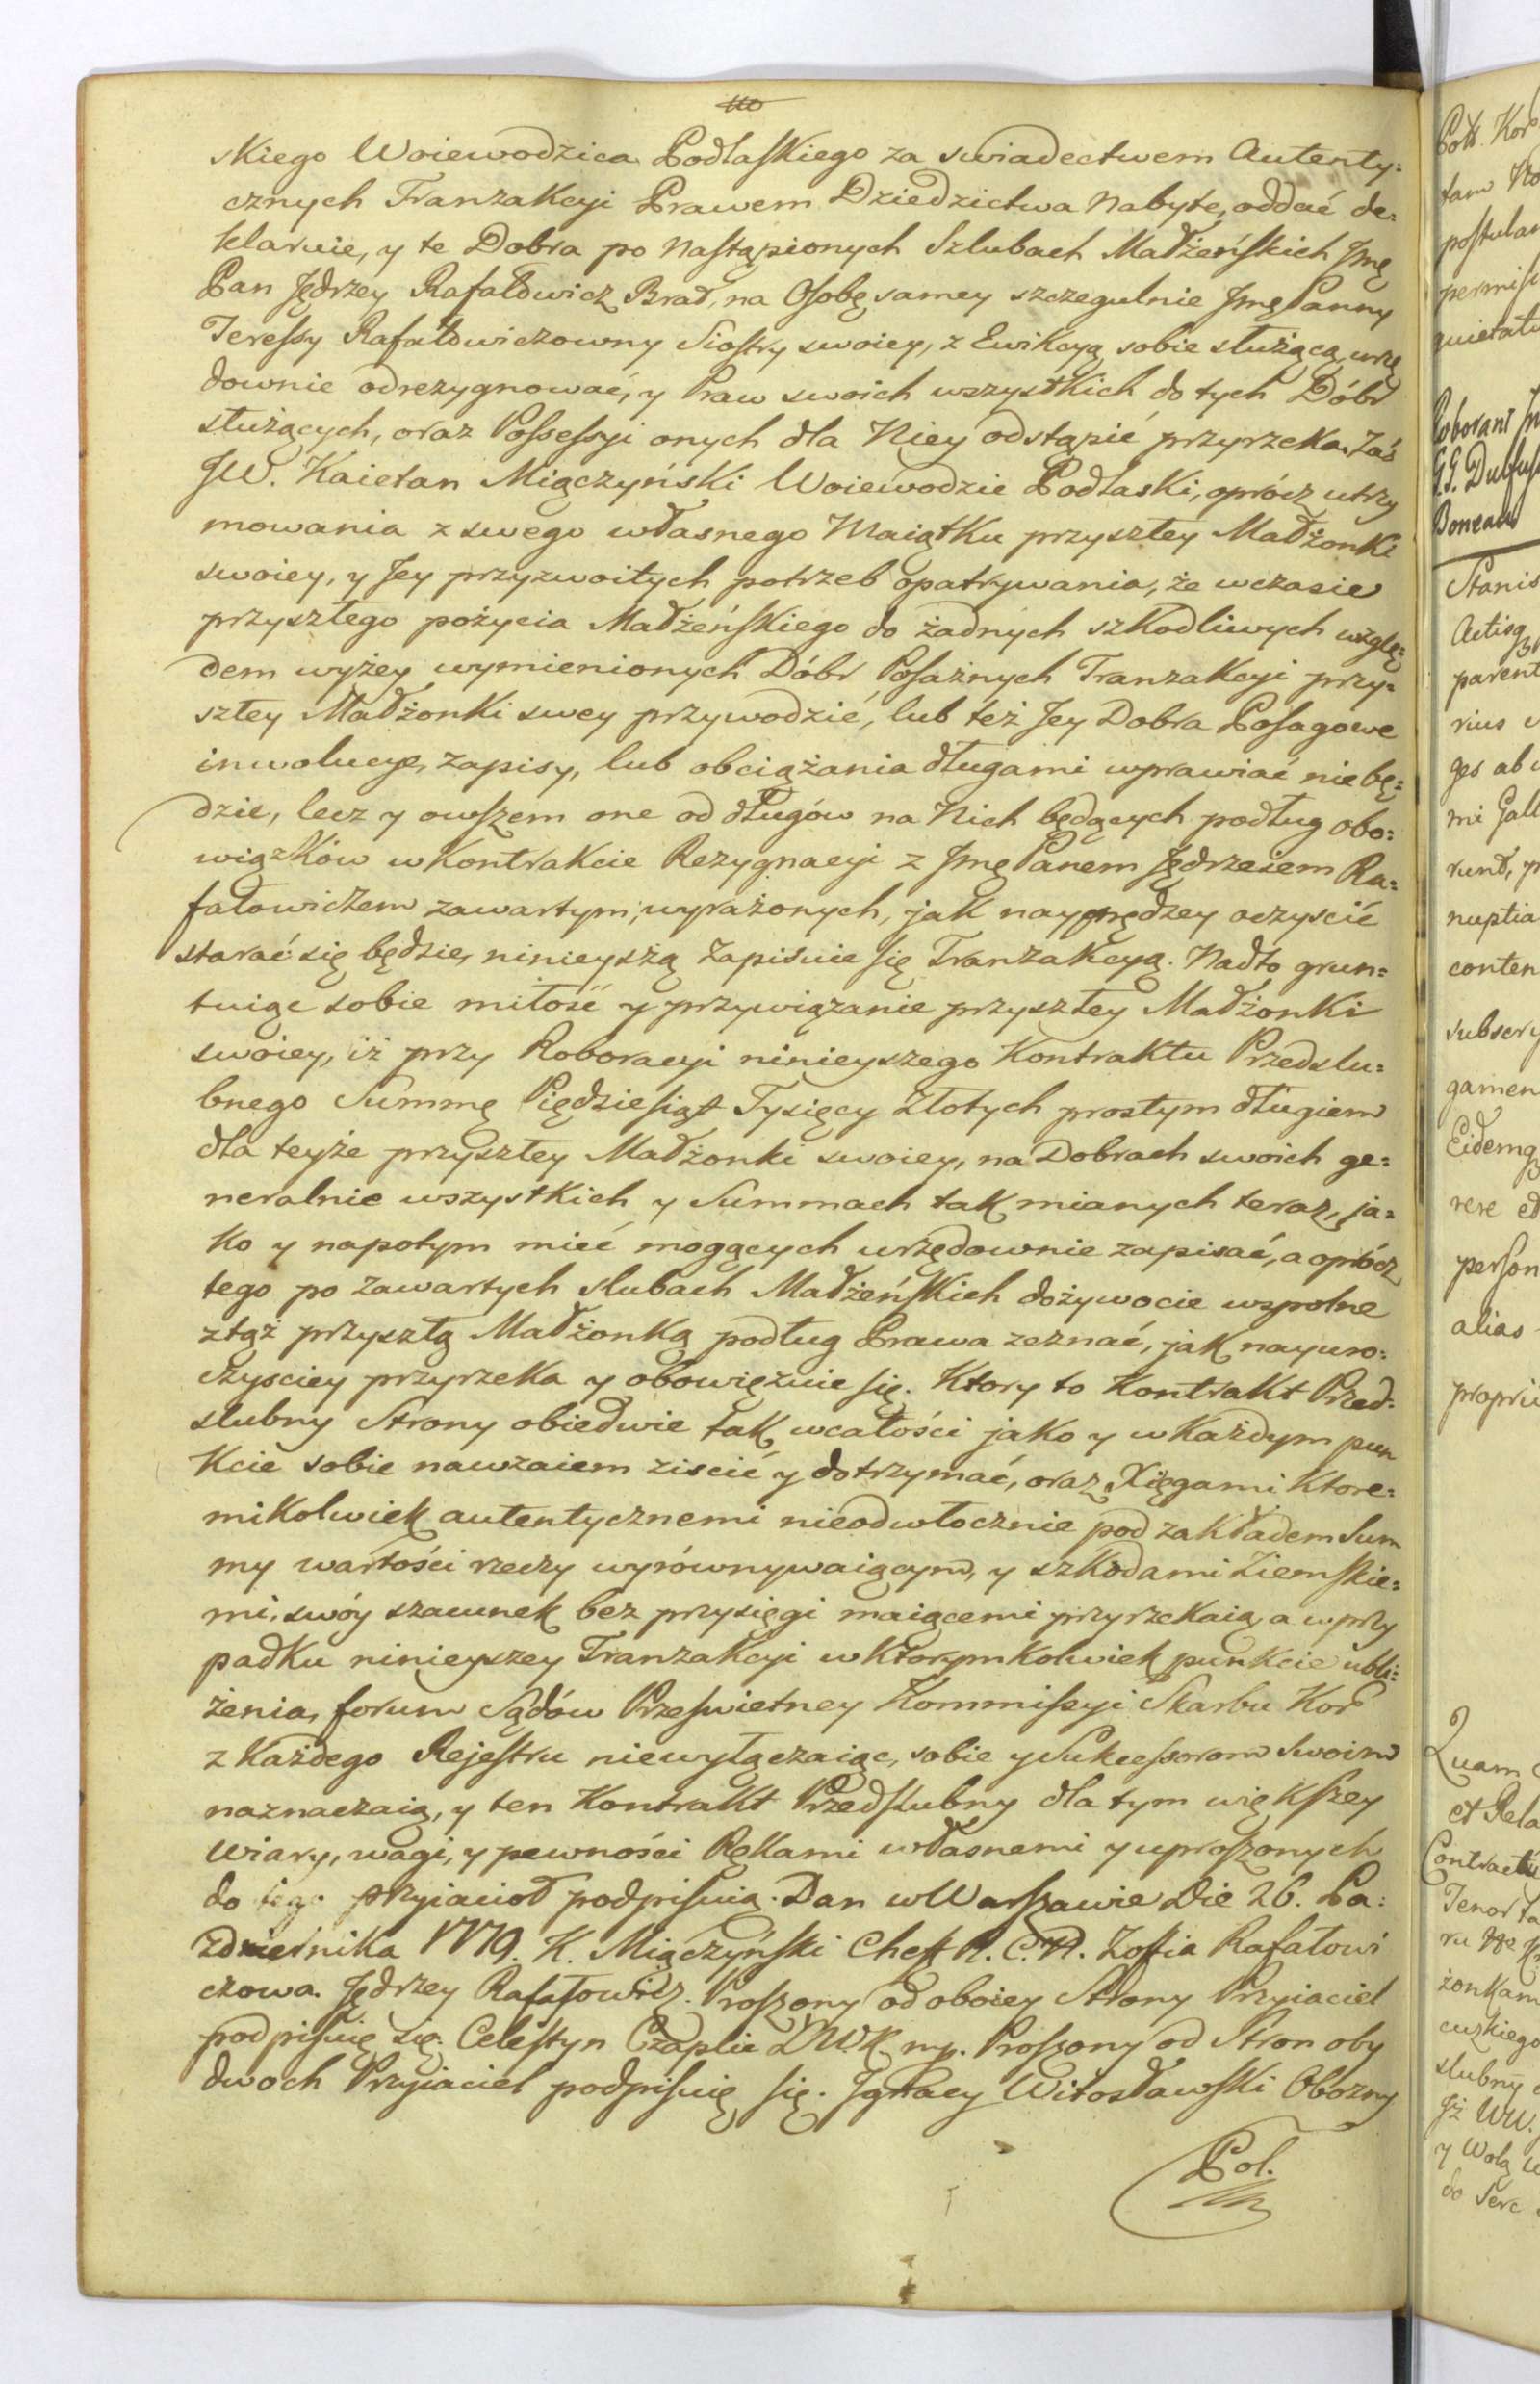 110
skiego Woiewodzica Podlaskiego za swiadectwem Autenty=
cznych Tranzakcyi Prawem Dziedzictwa Nabyte, oddać de=
klaruie, y te Dobra po Nastąpionych Szlubach Małżeńskich Jmę
Pan Jędrzey Rafałowicz Brat, na Osobę samey szczegulnie Jmę Panny
Teressy Rafałowiczowny Siostry swoiey, z Ewikcyą sobie służącą, urzę
downie odrezygnować, y Praw swoich wszystkich do tych Dóbr
służących, oraz Possessyi onych dla Niey odstąpić przyrzeka. Zaś
JW. Kaietan Miączyński Woiewodzic Podlaski, oprócz utrzy
mowania z swego własnego Maiątku przyszłey Małżonki
swoiey, y Jey przyzwoitych potrzeb opatrywania, że wczasie
przyszłego pożycia Małżeńskiego do żadnych szkodliwych wzglę=
dem wyżey wymienionych Dóbr Posażnych Tranzakcyi przy=
szłey Małżonki swey przywodzić, lub też Jey Dobra Posagowe
inwolucye, zapisy, lub obciążania długami wprawiać niebę=
dzie, lecz y owszem one od długów na Nich będących podług obo=
wiązków w Kontrakcie Rezygnacyi z Jmę Panem Jędrzeiem Ra=
fałowiczem zawartym, wyrażonych, jak nayprędzey oczyścić
starać się będzie, ninieyszą zapisuie się Tranzakcyą. Nadto grun=
tuiąc sobie miłość y przywiązanie przyszłey Małżonki
swoiey, iż przy Roboracyi ninieyszego Kontraktu Przedslu=
bnego Summę Pięćdziesiąt Tysięcy Złotych prostym długiem
dla teyże przyszłey Małżonki swoiey, na Dobrach swoich ge=
neralnie wszystkich y Summach tak mianych teraz, ja=
ko y napotym mieć mogących urzędownie zapisać, a oprócz
tego po zawartych slubach Małżeńskich dożywocie wspolne
ztąż przyszłą Małżonką podług Prawa zeznać, jak nayuro=
czysciey przyrzeka y obowięzuie się. Ktory to Kontrakt Przed=
slubny Strony obiedwie tak wcałości jako y w każdym pun
kcie sobie nawzaiem ziscić y dotrzymać, oraz Xięgami Ktore=
mikolwiek autentycznemi nieodwłocznie pod zakładem Sum
my wartości rzeczy wyrównywaiącym, y szkodami Ziemskie=
mi, swóy szacunek bez przysięgi maiącemi przyrzekaią, a wprzy
padku ninieyszey Tranzakcyi w którymkolwiek punkcie ubli=
żenia, forum Sądów Prześwietney Kommissyi Skarbu Kor
z każdego Rejestru niewyłączaiąc, sobie y Sukcessorom Swoim
naznaczaią, y ten Kontrakt Przedslubny dla tym większey
wiary, wagi, y pewności Rękami własnemi y uproszonych
do tego przyiacioł podpisuią. Dan w Warszawie Die 26. Pa=
zdziernika 1779. K. Miączyński Cheff R. C. Zofia Rafałowi
czowa. Jędrzey Rafałowicz. Proszony od oboiey Strony Przyiaciel
podpisuię się. Celestyn Czaplic ŁWK mp. Proszony od Stron oby
dwoch Przyiaciel podpisuię się. Ignacy Witosławski Obozny
Pol.
Pott. Kor
tam
postulan
permis
quietat
Roborant
Stanis
parent
rius
ges ab
mi Gall
runt,
nuptia
conten
subscri
gamen
Eidemq
rere
person
alias
propri
Quam
et Rela
Contractu
Tenor
żonkam
cuzkiego
slubny
Jż WW.
y Wolą
do Serc